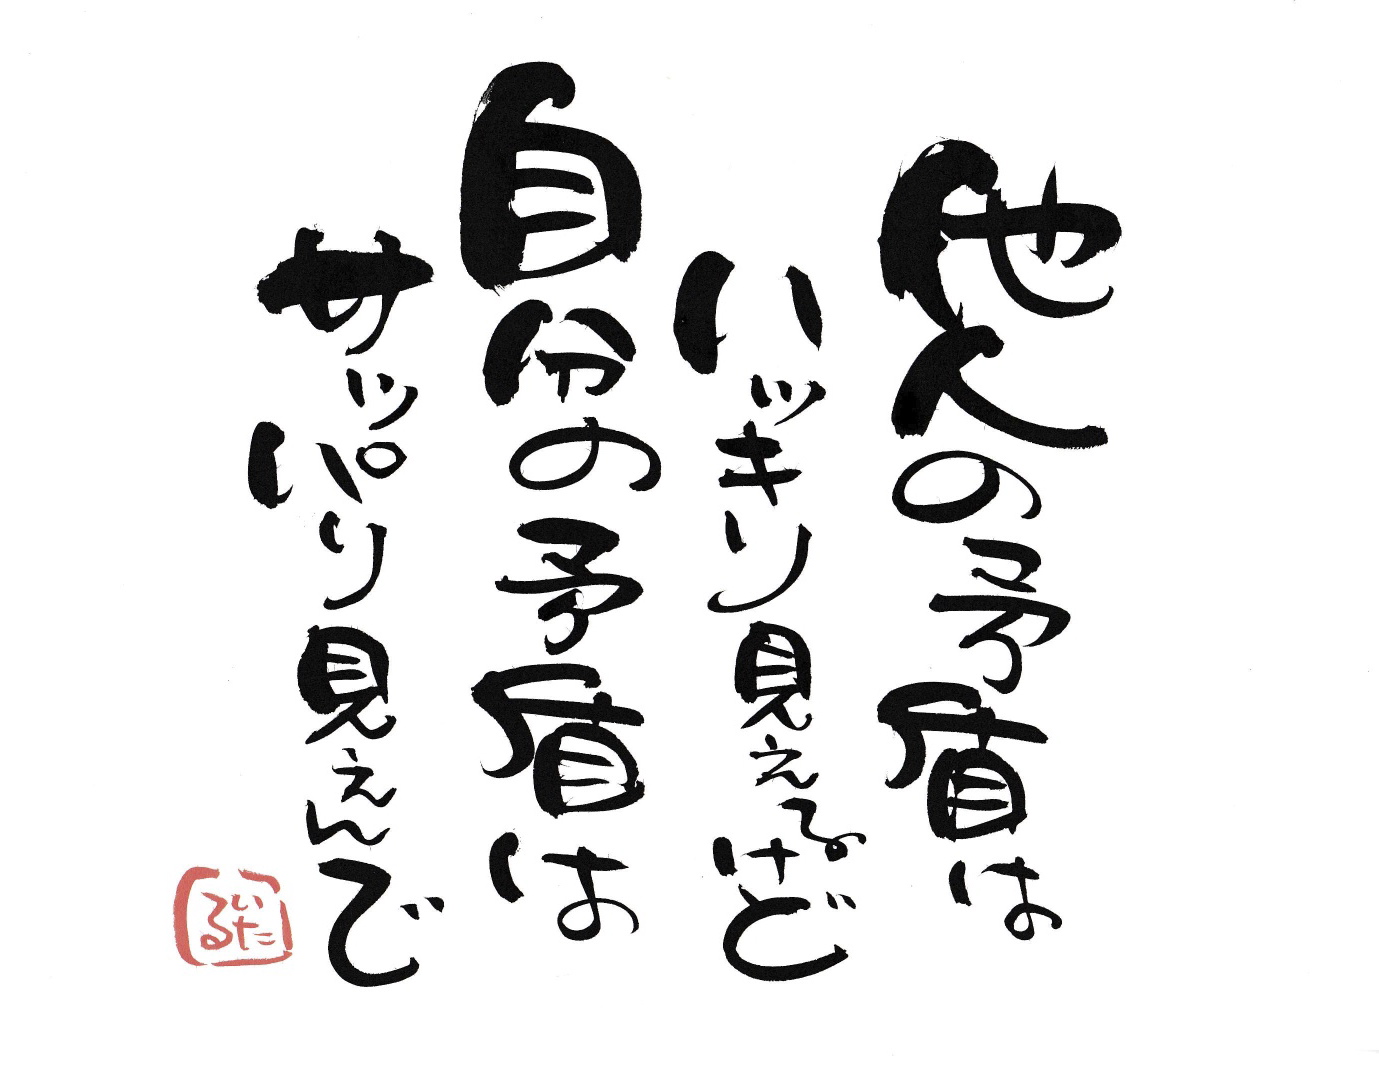 他人の矛盾は
ハッキリ見えるけど
自分の矛盾は
サッパリ見えんで
いたる